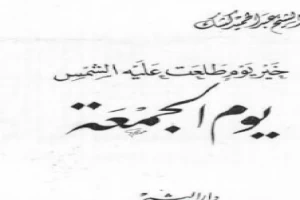 الشيخ عبد الحميد كشك
خَيْر يَوم طَلعَت عَلَيه الشَمْسِ
يوم الجمعَة